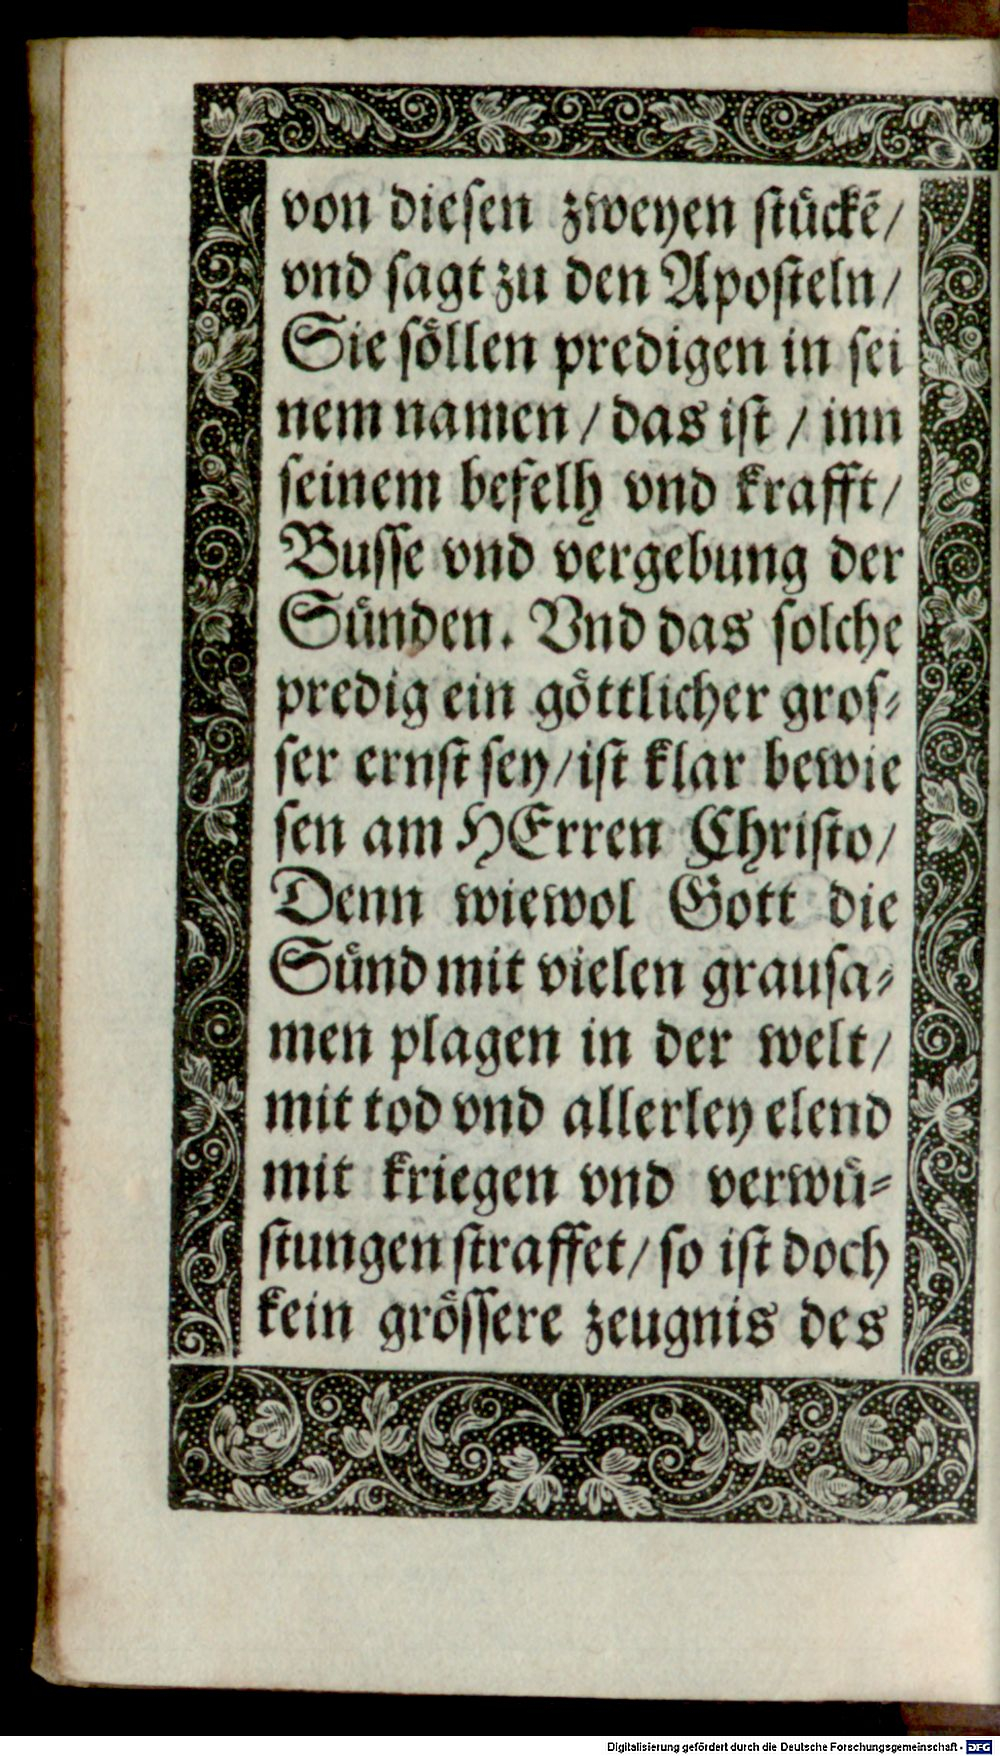 von diesen zweyen stückẽ/
vnd sagt zu den Aposteln/
Sie söllen predigen in sei
nem namen / das ist / inn
seinem befelh vnd krafft/
Busse vnd vergebung der
Sünden. Vnd das solche
predig ein göttlicher gros⸗
ser ernst sey/ist klar bewie
sen am HErren Christo/
Denn wiewol Gott die
Sünd mit vielen grausa⸗
men plagen in der welt/
mit tod vnd allerley elend
mit kriegen vnd verwü⸗
stungen straffet/ so ist doch
kein grössere zeugnis des
Digitalisierung gefördert durch die Deutsche Forschungsgemeinschaft - DFG